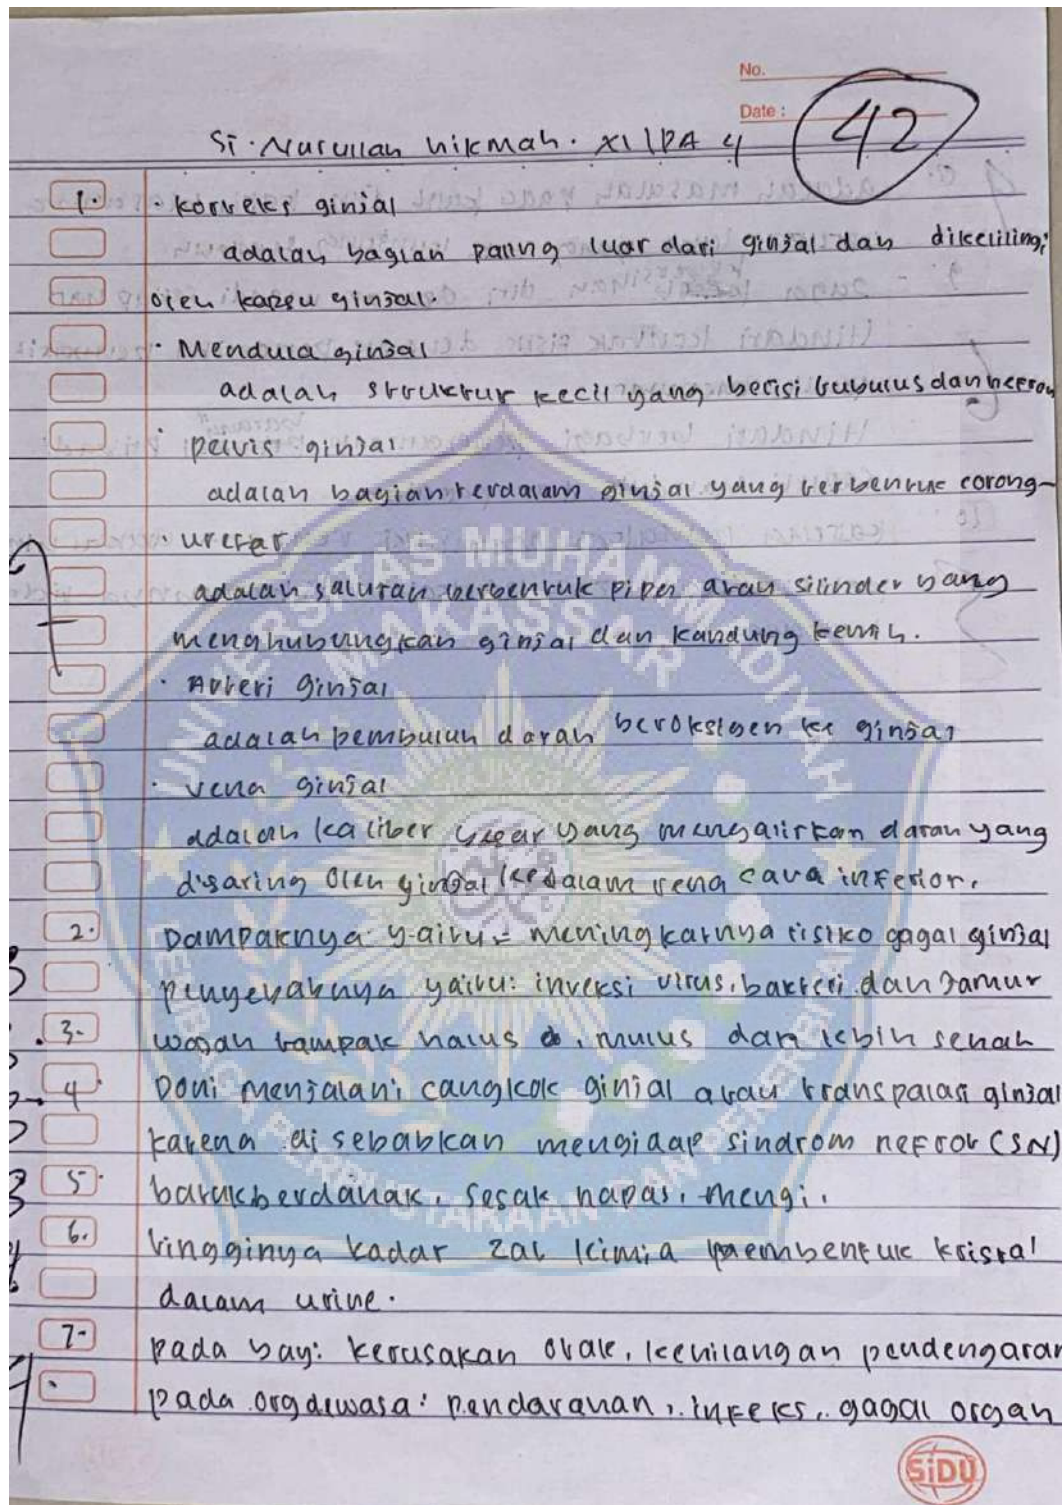 No.
Date :
42
Si. Nurullah hikmah. XI IPA 4
1. · Korveks ginjal
adalah bagian paling luar dari ginjal dan dikelilingi
oleh kapsu ginjal.
· Mendula ginjal
adalah struktur kecil yang berisi tubulus dan nefron
· pelvis ginjal
adalah bagian terdalam ginjal yang berbentuk corong-
· uretar
adalah saluran berbentuk pipa atau silinder yang
menghubungkan ginjal dan kandung kemih.
· Arteri ginjal
adalah pembuluh darah beroksigen ke ginjal
· vena ginjal
adalah kaliber yang mengalirkan darah yang
disaring oleh ginjal kedalam vena cava inferior.
2. Dampaknya yaitu = meningkatnya risiko gagal ginjal
penyebabnya yaitu: inveksi virus, bakteri dan jamur
3. wajah tampak halus, mulus dan lebih senah
4. Doni menjalani cangkok ginjal atau transpalasi ginjal
karena di sebabkan mengidap sindrom nefrot (SN)
5. batuk berdahak, sesak napas, mengi,
6. tingginya kadar zat kimia pembentuk kristal
dalam urine.
7. pada bayi: kerusakan otak, kehilangan pendengaran
pada org dewasa: pendarahan, infeks, gagal organ
UNIVERSITAS MUHAMMADIYAH
MAKASSAR
LEMBAGA PERPUSTAKAAN DAN PENERBITAN
SiDU